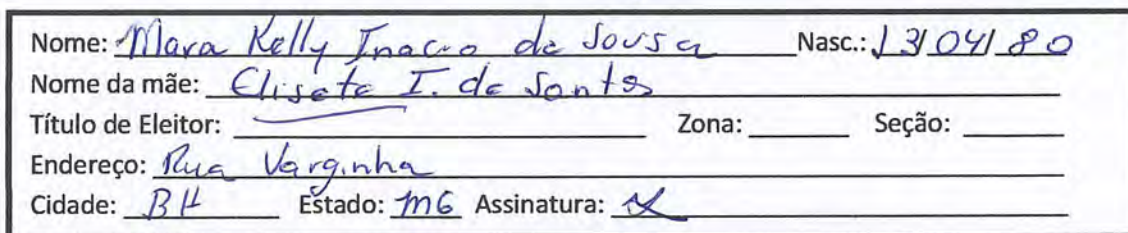 Nome: Mara Kelly Inacio de Sousa Nasc.: 13/04/80
Nome da mãe: Elisete I. de Santos
Título de Eleitor: Zona: Seção:
Endereço: Rua Varginha
Cidade: BH Estado: MG Assinatura: